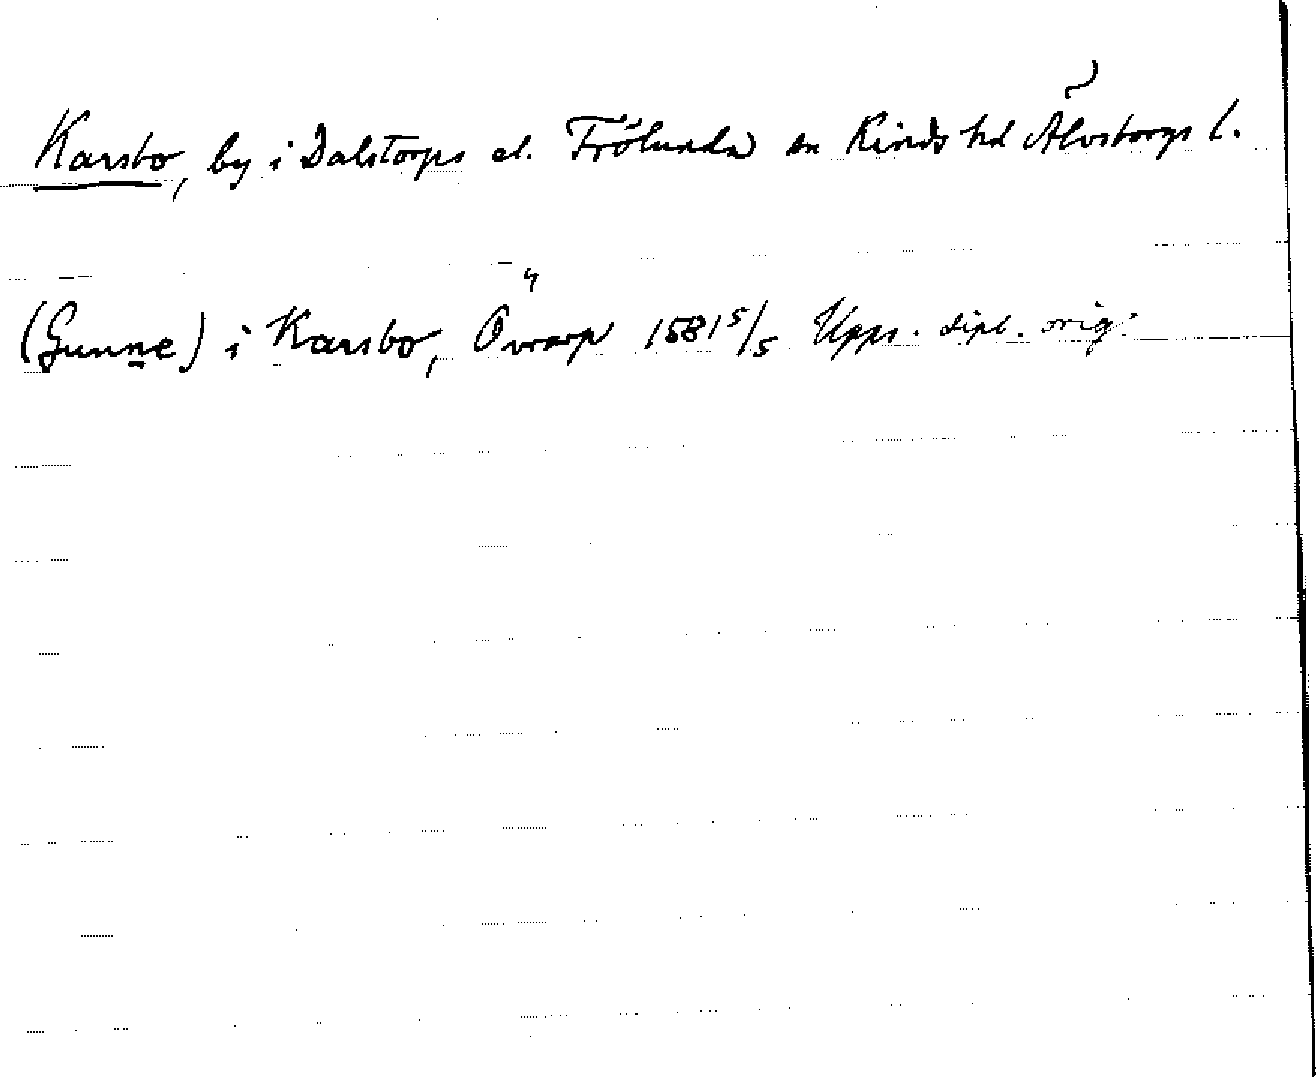 Karsbo, by i Dalstorps el. Frölunda sn Kinds hd Älvsborgs l.
(Gunne) i Karsbo, Övrarp 1581 5/5 Upps. dipl. orig.